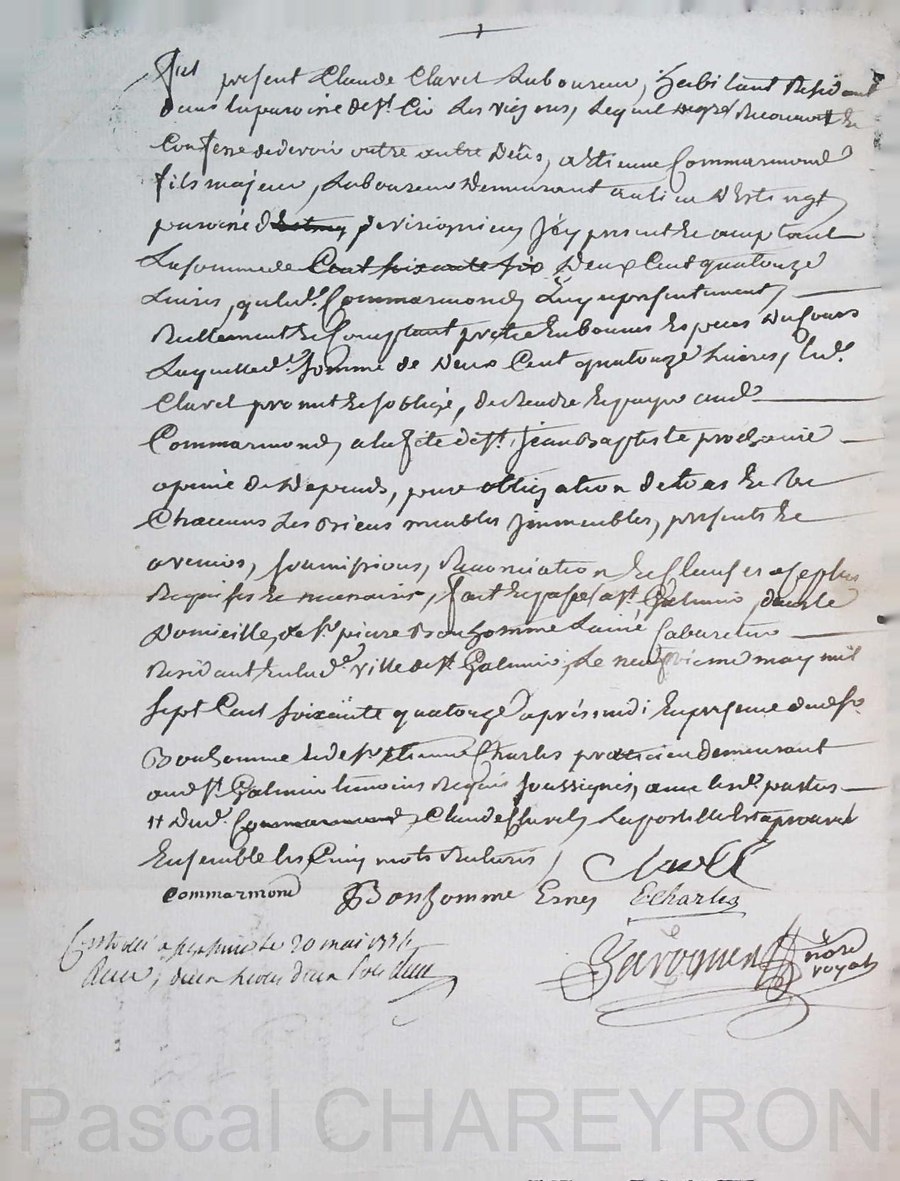 Fut present Claude Clavel Laboureur, habitant Resident
dans la paroisse de St. Cir Les vignes, Lequel degré Reconnoit Et
Confesse de devoir outre autre Dette, a Etienne Commarmond
fils majeur, Laboureur Demeurant au lieu D'
paroisse d' Jcy present Et acceptant
La somme de Cent soixante six Deux Cent quatorze
Livres, que led. Commarmond Luy a presentement
Reellement Et Comptant preté En bonnes Especes Du Cours
Laquelle d. somme de Deux Cent quatorze Livres, led.
Clavel promet Et s'oblige, de Rendre Et payer aud.
Commarmond, a la fete de St. Jean Baptiste prochaine
a peine de Depends, pour obligation de tous Et Un
Chacuns Ses Biens meubles Jmmeubles, presents Et
avenirs, soumissions, Renonciation Et Clauses
Requises Et necessaires, fait Et passé a St. Galmier, dans le
Domicille, de Sr. pierre Bonhomme Lainé Cabaretier
Residant En lad. ville de St. Galmier, Le neufvieme may mil
sept Cent soixante quatorze après midi En presence dud. Sr.
Bonhomme Et de Sr. Etienne Charles praticien demeurant
aud. St. Galmier temoins Requis soussignés, avec lesd. parties
Dud. Commarmond, Claude Clavel, La postille Est aprouvée
Ensemble les Cinq mots Raturés
Clavel
Commarmond Bonhomme Esnes E Charles
Controllé a St galmier le 20 mai 1774
Reçu
nore
royal
Pascal CHAREYRON